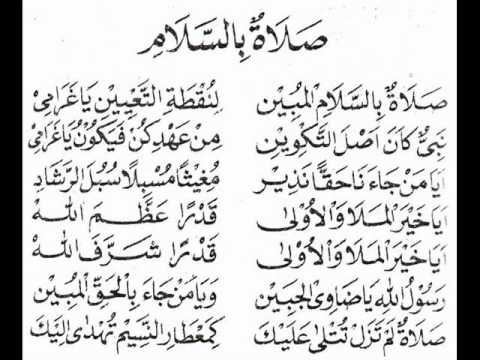 صَلَاةٌ بِالسَّلَامِ
صَلَاةٌ بِالسَّلَامِ الْمُبِيْن لِنُقْطَةِ التَّعْيِيْنِ يَاغَرَامِيْ
نَبِيٌّ كَانَ اَصْلَ التَّكْوِيْنِ مِنْ عَهْدِ كُنْ فَيَكُوْنُ يَاغَرَامِيْ
اَيَا مَنْ جَاءَ نَاحَقًّا نَذِيْر مُغِيْثًا مُسْبِلًا سُبُلَ الرَّشَادِ
اَيَا خَيْرَ الْمَلَا وَالْاُوْلَى قَدْرًا عَظَّمَ اللهُ
اَيَا خَيْرَ الْمَلَا وَالْاُوْلَى قَدْرًا شَرَّفَ اللهُ
رَسُوْلُ اللهِ يَاضَاوِى الْجَبِيْن وَيَامَنْ جَاءَ بِالْحَقِّ الْمُبِيْن
صَلَاةٌ لَمْ تَزَلْ تُتْلَى عَلَيْكَ كَمِعْطَارِ النَّسِيْمِ تُهْدَى اِلَيْكَ